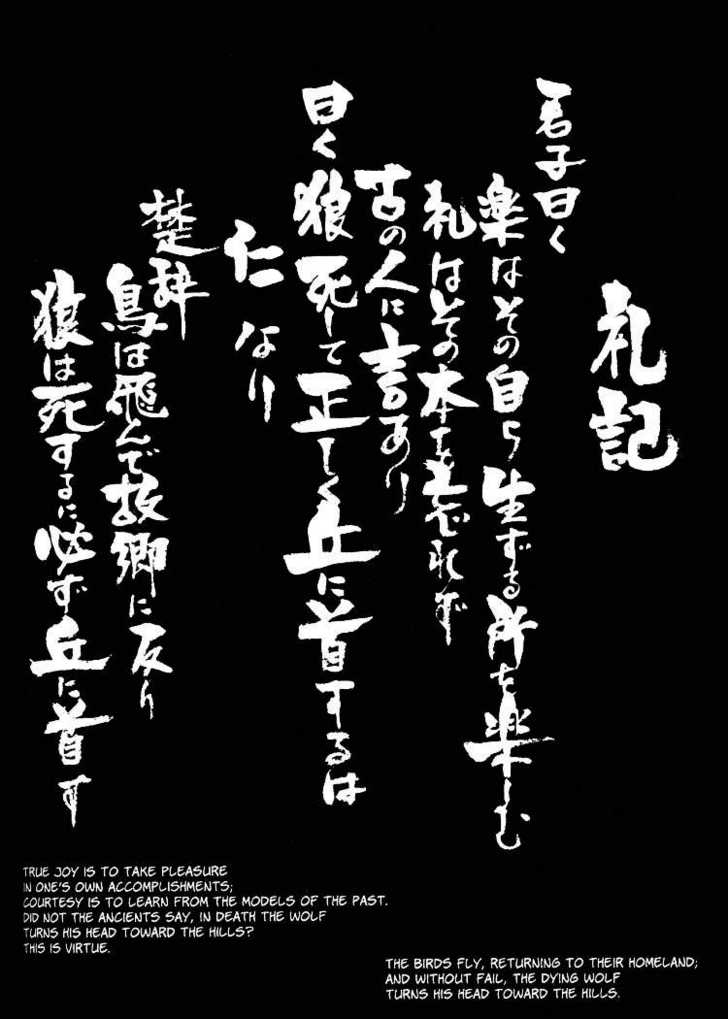 礼記
君子曰く
楽はその自ら生ずる所を楽しむ
礼はその本を忘れず
古の人に言あり
曰く狼死して正しく丘に首するは
仁なり
楚辞
鳥は飛んで故郷に反り
狼は死するに必ず丘に首す
TRUE JOY IS TO TAKE PLEASURE
IN ONE'S OWN ACCOMPLISHMENTS;
COURTESY IS TO LEARN FROM THE MODELS OF THE PAST.
DID NOT THE ANCIENTS SAY, IN DEATH THE WOLF
TURNS HIS HEAD TOWARD THE HILLS?
THIS IS VIRTUE.
THE BIRDS FLY, RETURNING TO THEIR HOMELAND;
AND WITHOUT FAIL, THE DYING WOLF
TURNS HIS HEAD TOWARD THE HILLS.